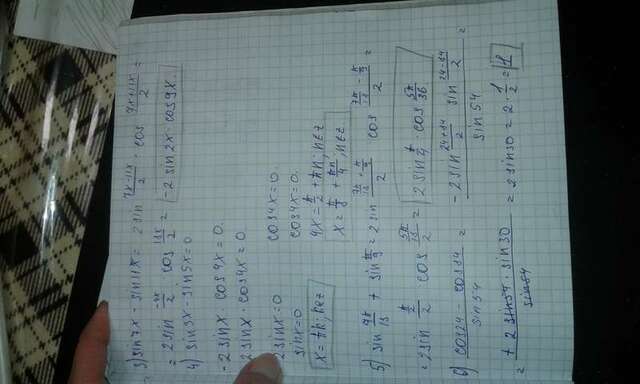 3) sin7x - sin11x = 2sin (7x-11x)/2 · cos (7x+11x)/2 =
= 2sin (-4x)/2 cos (18x)/2 = -2 sin2x · cos9x.
4) sin3x - sin5x = 0
-2sinx · cos4x = 0.
2sinx · cos4x = 0.
2sinx = 0 cos4x = 0.
sinx = 0 cos4x = 0.
x = πk; k∈z 4x = π/2 + πn; n∈z
x = π/8 + πn/4, n∈z
5) sin 7π/18 + sin π/9 = 2sin (7π/18 + π/9)/2 cos (7π/18 - π/9)/2 =
= 2sin (π/2)/2 cos (5π/18)/2 = 2 sin π/4 · cos 5π/36
6) (cos24 - cos84)/sin54 = (-2sin (24+84)/2 sin (24-84)/2)/sin54 =
= (+2 sin54 · sin30)/sin54 = 2sin30 = 2 · 1/2 = 1